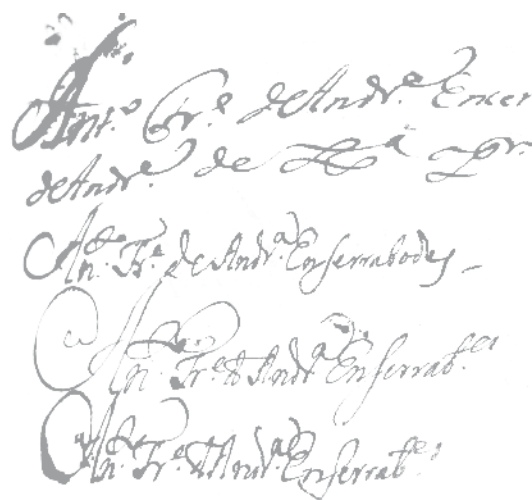 Ant.º Fr.e de Andr.e Encer
de Andr.e de
An.to Fr.e de Andr.a Enserrabodes
An.to Fr.e d Andr.a Enserrab.es
An.to Fr.e d Andr.a Enserrab.es